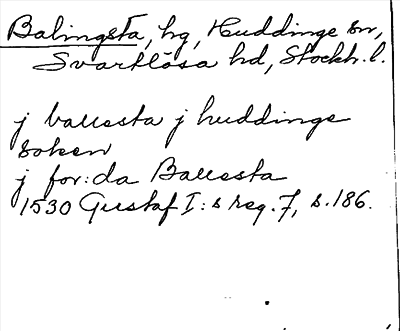 Balingsta, hg, Huddinge sn,
Svartlösa hd, Stockh. l.
j ballesta j huddinge
soken
j for:da Ballesta
1530 Gustaf I:s reg. 7, s. 186.